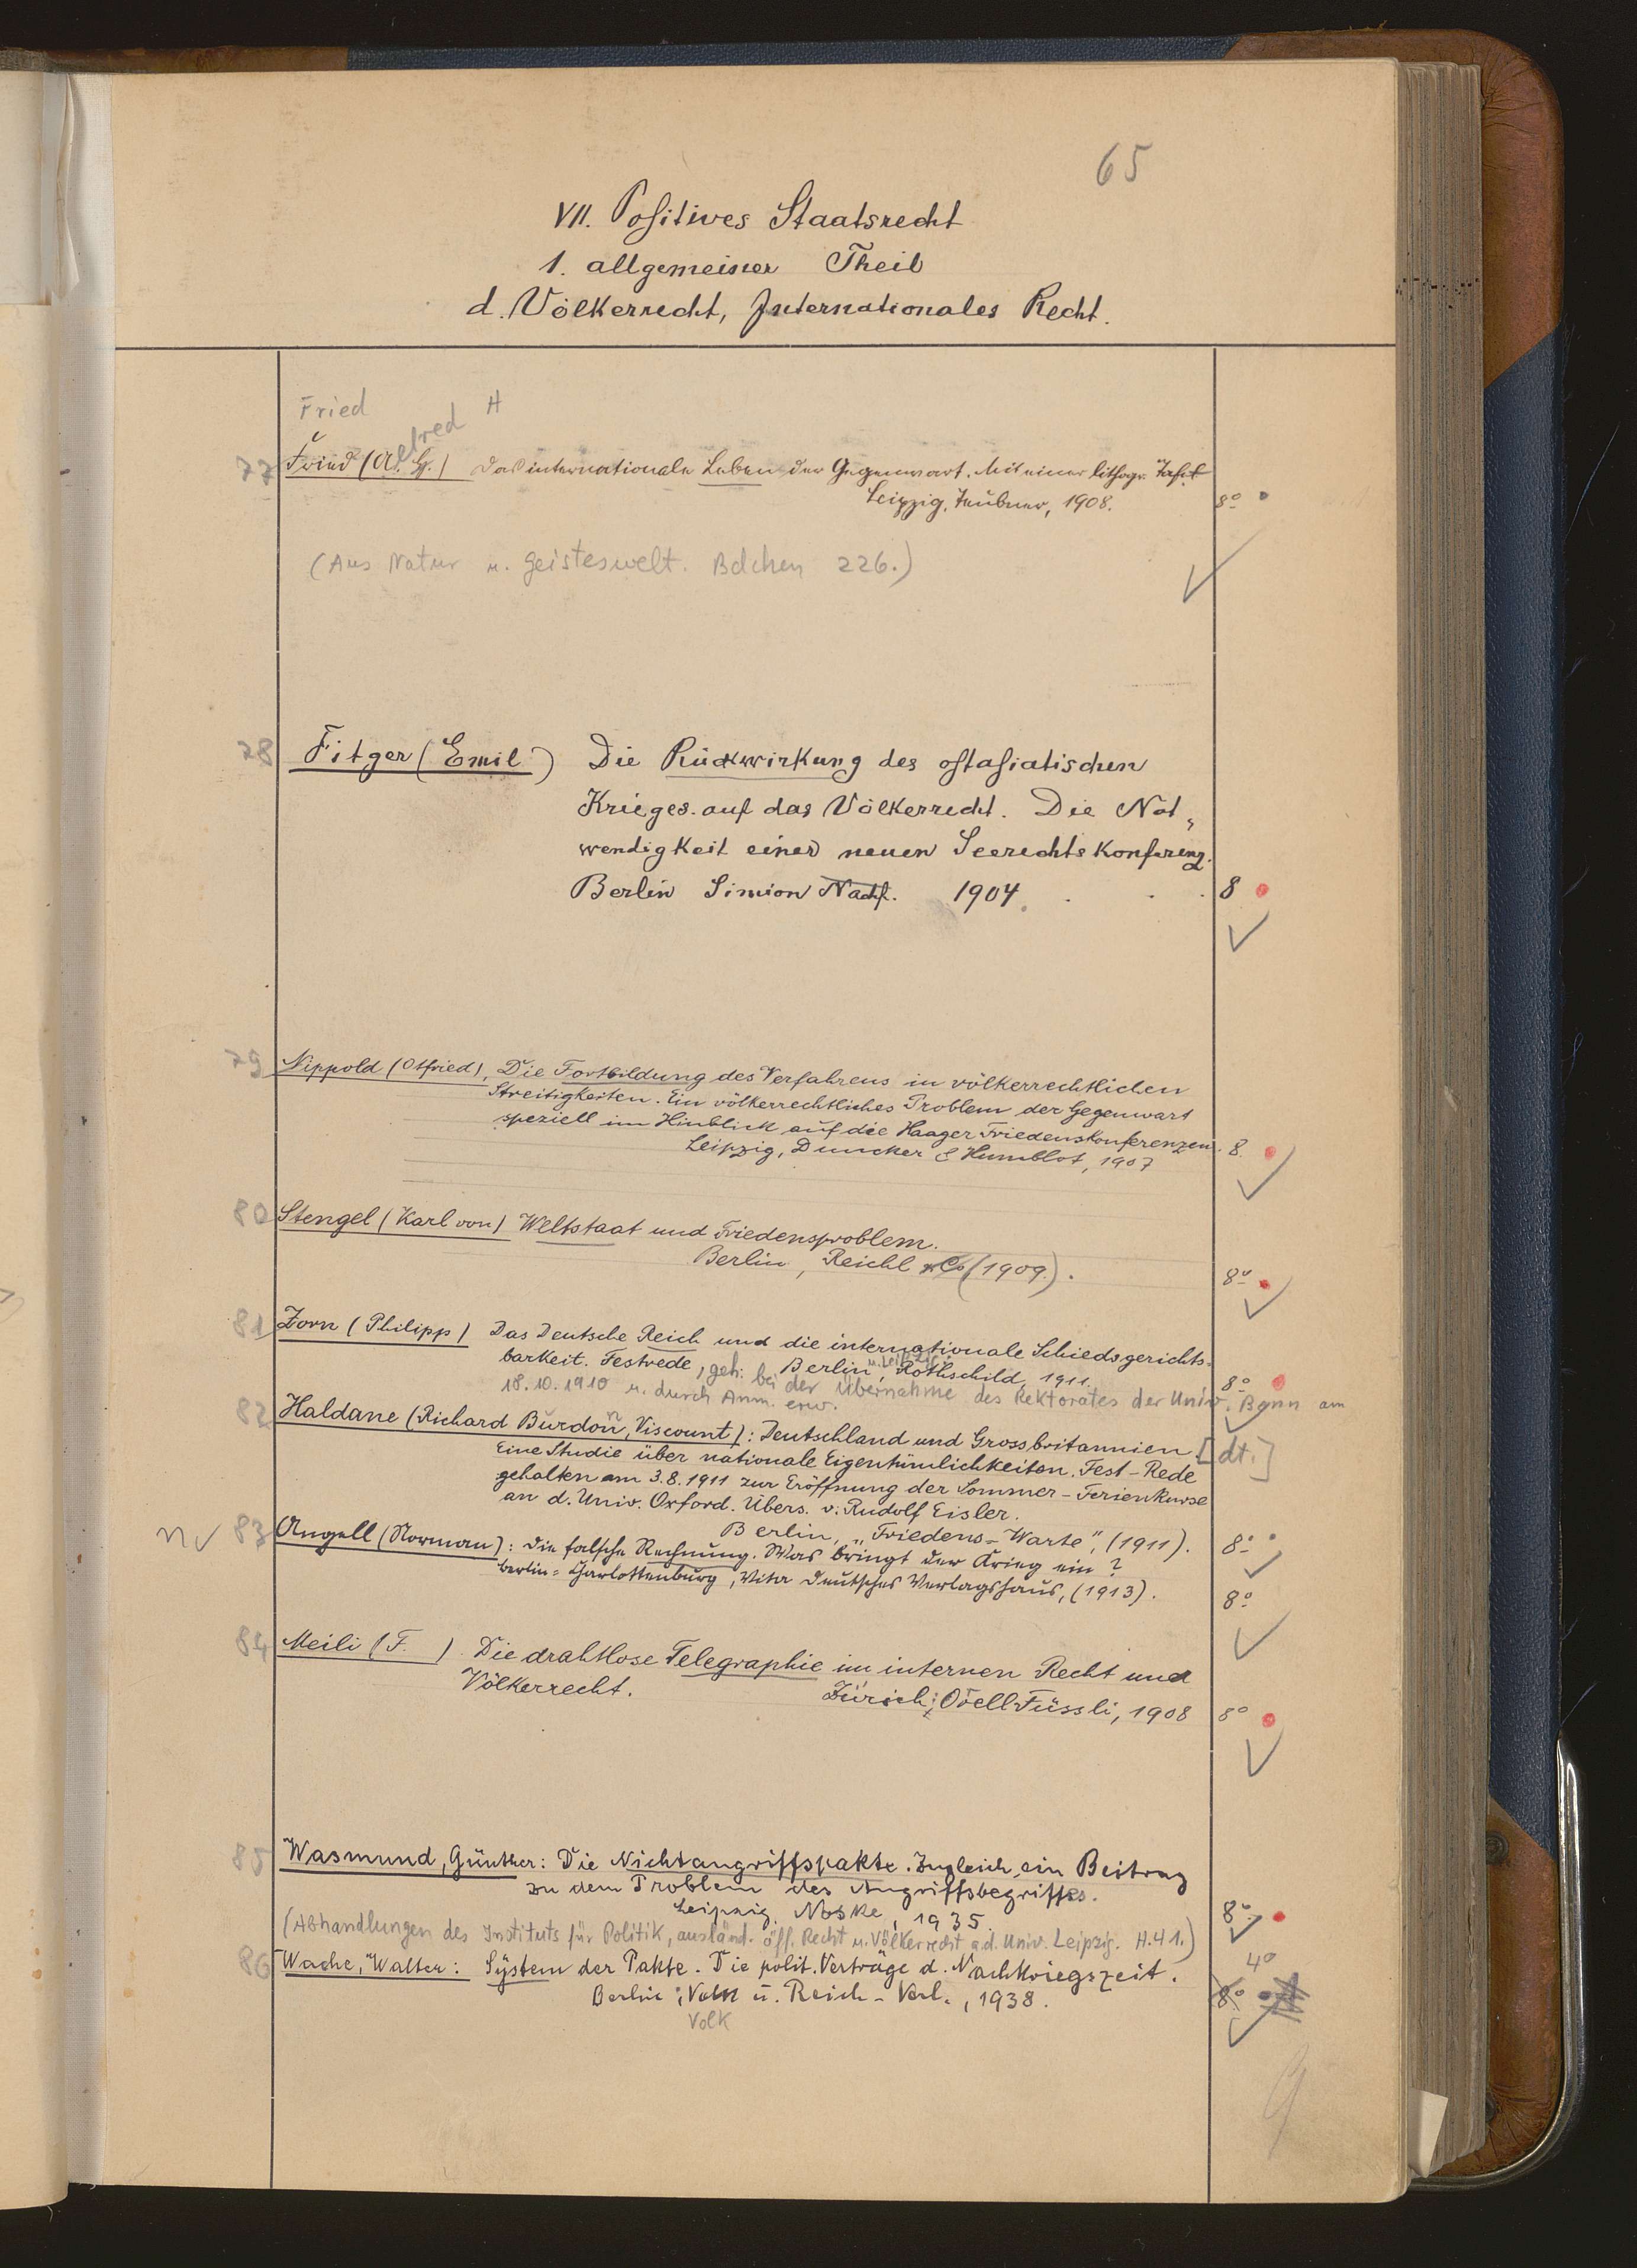 65
VII. Positives Staatsrecht
1. allgemeiner Theil
d. Völkerrecht, Internationales Recht.
Fried H
Alfred
77 Fried (A. H.) Das internationale Leben der Gegenwart. Mit einer lithogr. Tafel
Leipzig, Teubner, 1908. 8º
(Aus Natur u. Geisteswelt. Bdchen 226.)
78 Fitger (Emil) Die Rückwirkung des ostasiatischen
Krieges auf das Völkerrecht. Die Not-
wendigkeit einer neuen Seerechtskonferenz.
Berlin Simion Nachf. 1904. 8
79 Nippold (Otfried), Die Fortbildung des Verfahrens in völkerrechtlichen
Streitigkeiten. Ein völkerrechtliches Problem der Gegenwart
speziell im Hinblick auf die Haager Friedenskonferenzen.
Leipzig, Duncker & Humblot, 1907 8.
80 Stengel (Karl von) Weltstaat und Friedensproblem.
Berlin, Reichl & Co (1909). 8º
81 Zorn (Philipp) Das Deutsche Reich und die internationale Schiedsgerichts-
barkeit. Festrede, geh. bei der Übernahme des Rektorates der Univ. Bonn am
18.10.1910 u. durch Anm. erw.
Berlin u. Leipzig, Rothschild, 1911. 8º
82 Haldane (Richard Burdon, Viscount): Deutschland und Grossbritannien [dt.]
Eine Studie über nationale Eigentümlichkeiten. Fest-Rede
gehalten am 3.8.1911 zur Eröffnung der Sommer-Ferienkurse
an d. Univ. Oxford. Übers. v. Rudolf Eisler.
Berlin, "Friedens-Warte", (1911). 8º
n 83 Angell (Norman): Die falsche Rechnung. Was bringt der Krieg ein?
Berlin-Charlottenburg, Vita Deutsches Verlagshaus, (1913). 8º
84 Meili (F. ) Die drahtlose Telegraphie im internen Recht und
Völkerrecht. Zürich, Orell Füssli, 1908 8º
85 Wasmund, Günther: Die Nichtangriffspakte. Zugleich ein Beitrag
zu dem Problem des Angriffsbegriffes.
Leipzig, Noske, 1935. 8º
(Abhandlungen des Instituts für Politik, ausländ. öff. Recht u. Völkerrecht a.d. Univ. Leipzig. H.41.)
86 Wache, Walter: System der Pakte. Die polit. Verträge d. Nachkriegszeit. 4º
Berlin: Volk u. Reich-Verl., 1938. 8º
Volk
9